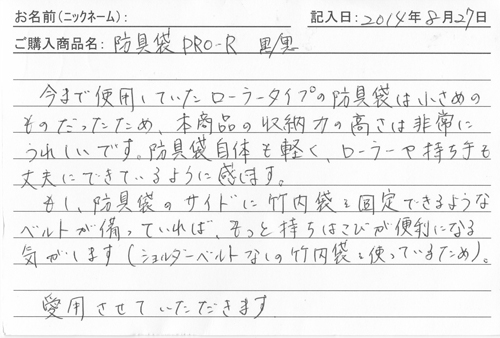 お名前(ニックネーム): 記入日: 2014年8月27日
ご購入商品名: 防具袋 PRO-R 黒/黒
今まで使用していたローラータイプの防具袋は小さめの
ものだったため、本商品の収納力の高さは非常に
うれしいです。防具袋自体も軽く、ローラーや持ち手も
丈夫にできているように感じます。
もし、防具袋のサイドに竹内袋を固定できるような
ベルトが備っていれば、もっと持ちはこびが便利になる
気がします(ショルダーベルトなしの竹内袋を使っているため)。
愛用させていただきます